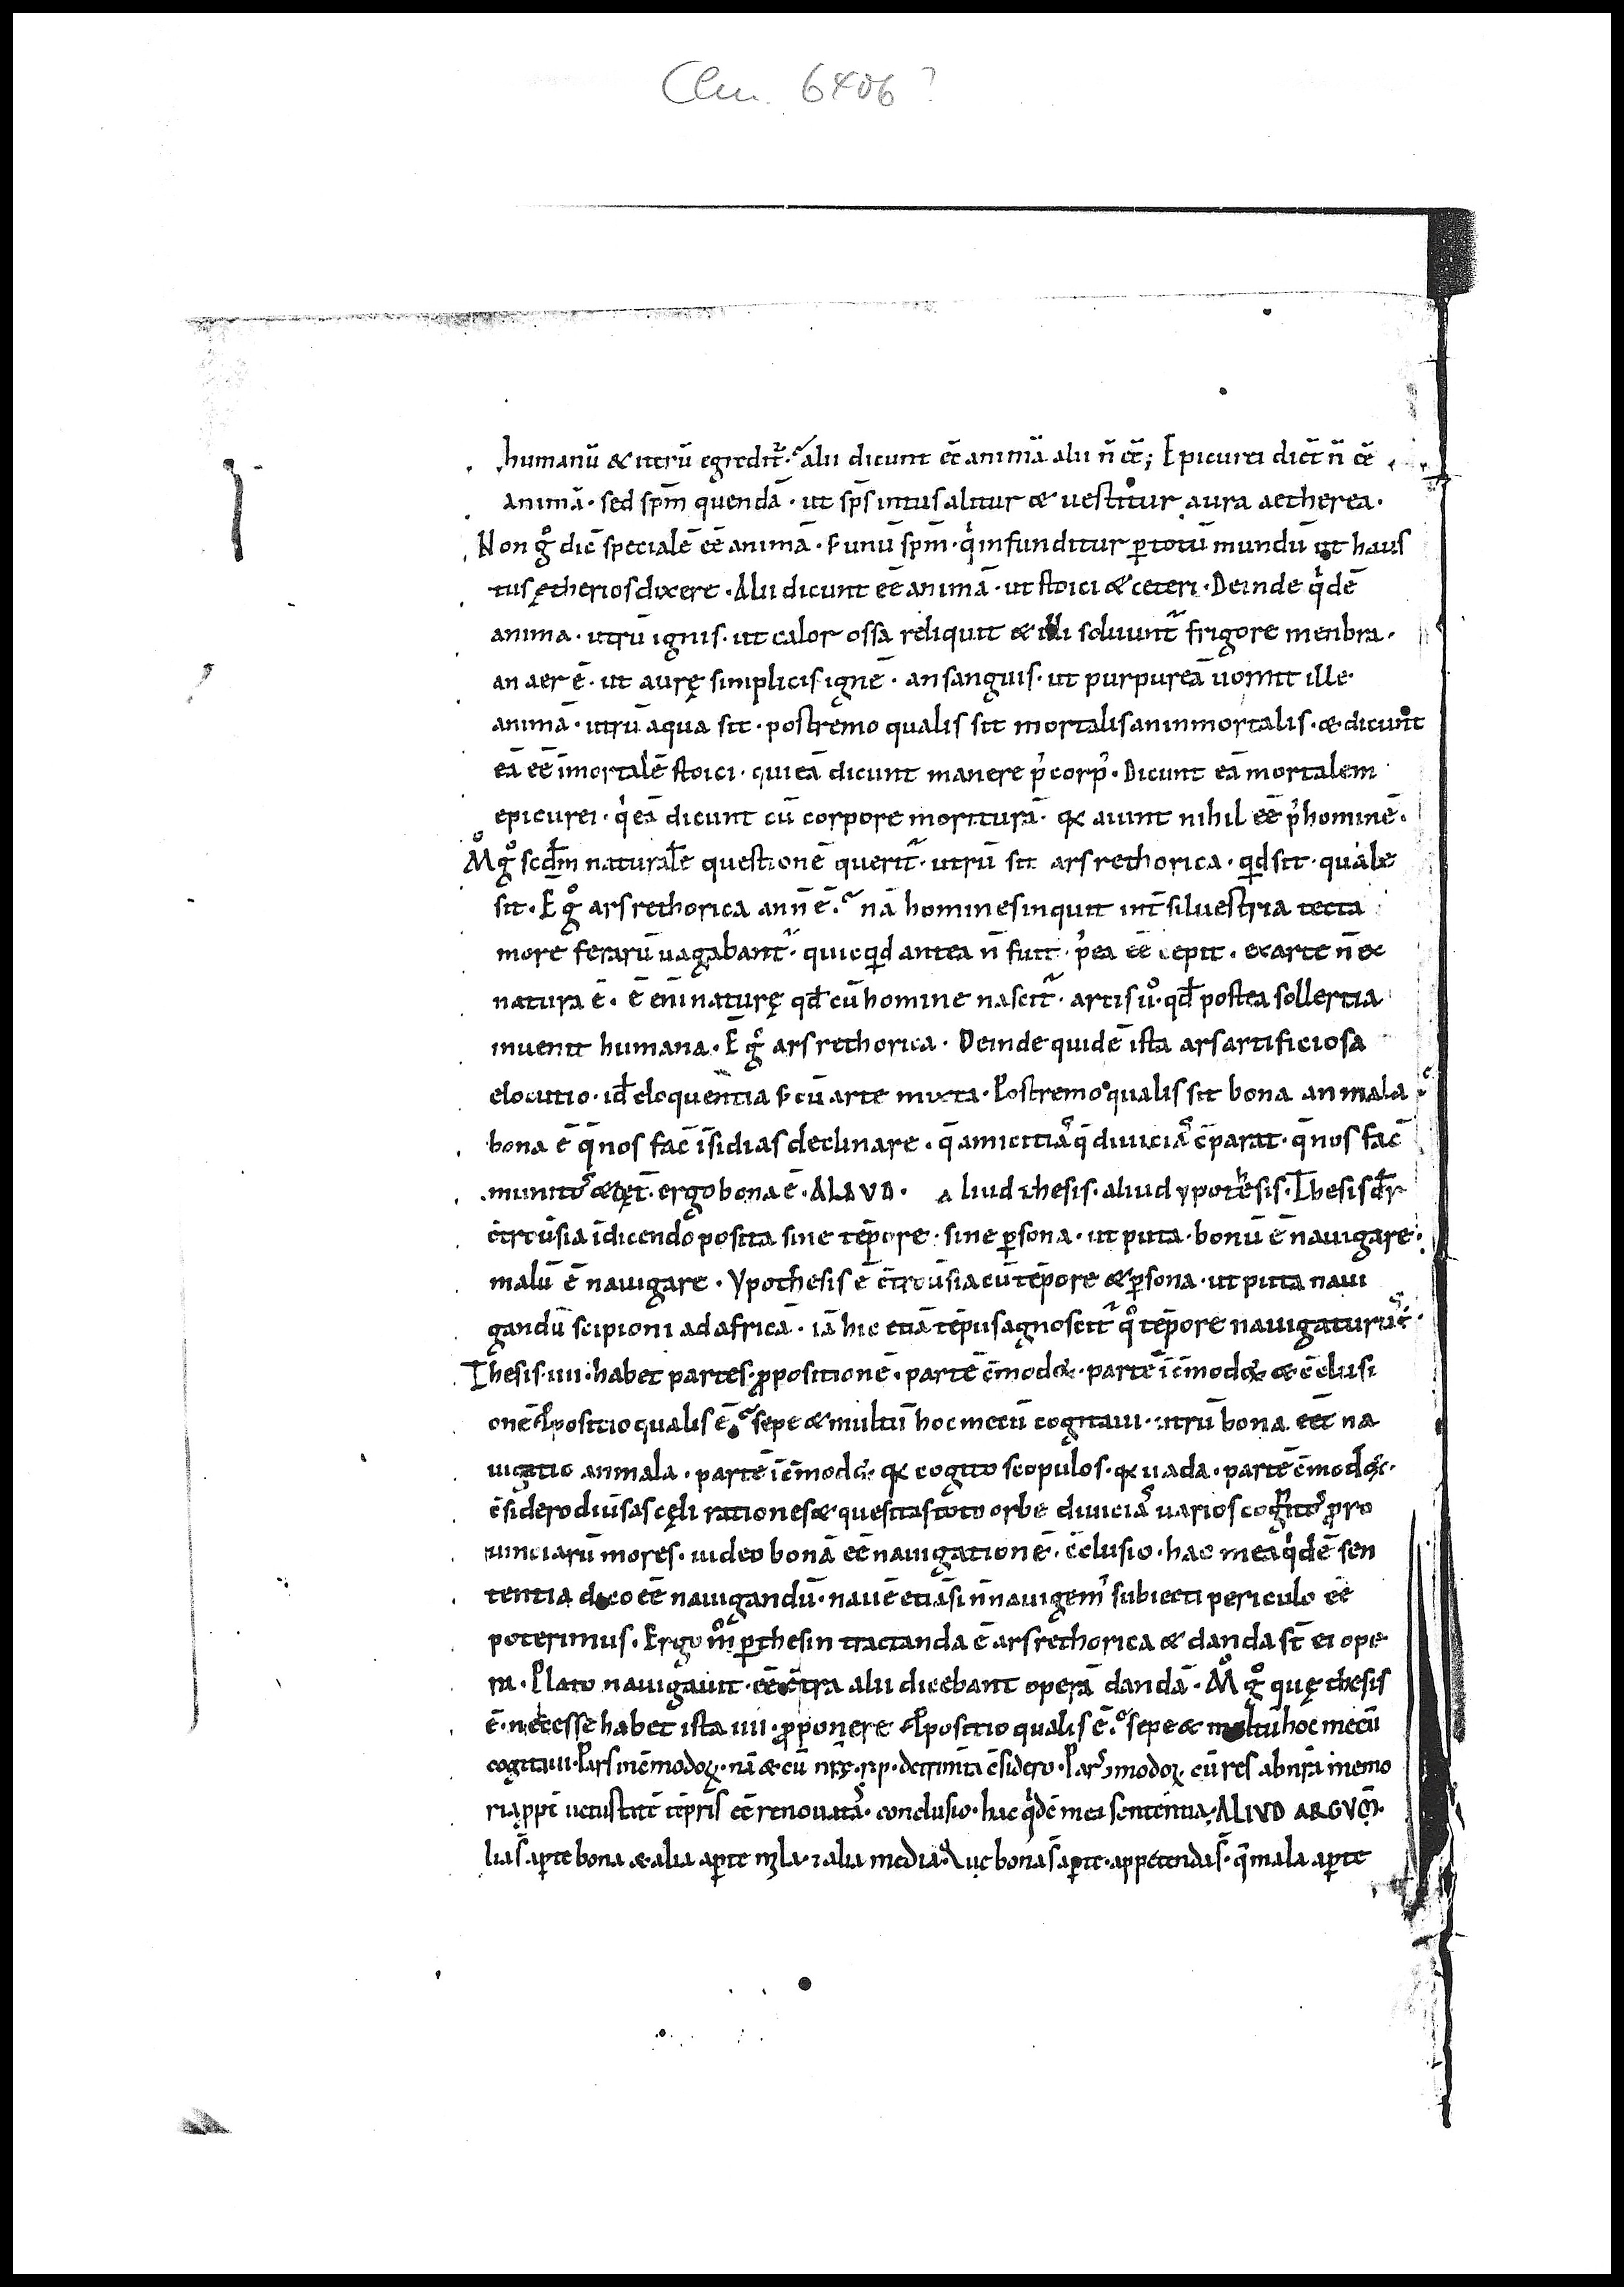 Clm. 6406?
humanū & utrū egredit̃. alii dicunt eē animā alii n̄ eē; Epicurei dict̄ n̄ eē
animā · sed spm̄ quendā · ut sps̄ intus alitur & vestitur aura aetherea ·
Non gͦ dic̄ specialē eē animā · s; unū spm̄ · qͥ infunditur ꝑ totū mundū ut haus
tus ętherios dixere · Alii dicunt eē animā · ut stoici & ceteri · Deinde qͥdē
anima · utrū ignis · ut calor ossa reliquit & illi soluunt̃ frigore menbra ·
an aer ē · ut aurę simplicis ignē · an sanguis · ut purpureā uomit ille
animā · utrū aqua sit · postremo qualis sit mortalis an inmortalis · & dicunt
eā eē īmortalē stoici · qui eā dicunt manere p̓ corp̓ · Dicunt eā mortalem
epicurei · qͥ eā dicunt cū corpore moriturā · qꝛ aiunt nihil eē p̓ hominē ·
Mͦ gͦ scd̄m naturalē questionē querit̃ · utrū sit ars rethorica · qͥd sit · quale
sit · Ē gͦ ars rethorica an n̄ ē · nā homines inquit int̄ siluestria tecta
more ferarū uagabant̃ · quicqͥd antea n̄ fuit · p̓ea eē cepit · ex arte n̄ ex
natura ē · ē eni naturę qd̄ cū homine nascit̃ · artis ůͦ · qd̄ postea sollertia
inuenit humana · Ē gͦ ars rethorica · Deinde quidē ista ars artificiosa
elocutio · id̄ eloquentia s; cū arte mixta · Postremo qualis sit bona an mala
bona ē q̄ nos fac̄ īsidias declinare · q̄ amicitiaˢ q̄ diuiciaˢ c̄parat · q̄ nos fac̄
munitoˢ & tęt̄ · ergo bona ē · ALIVD · aliud thesis · aliud ypothesis · Thesis dr̄
c̄trouˢia ī dicendo posita sine tēpore · sine ꝑsona · ut puta · bonū ē nauigare ·
malū ē nauigare · Ypothesis ē c̄trouˢia cū tēpore & ꝑsona · ut puta naui
gandū scipioni ad africā · iā hic etiā tēpus agnoscit̃ qͦ tēpore nauigaturꝰ ē ·
Thesis · iiii · habet partes · ꝓpositionē · partē c̄mod& · partē īc̄mod& & c̄clusi
onē Ꝓpositio qualis ē · sepe & multū hoc mecū cogitaui · utrū bona eēt na
uigatio an mala · partē īc̄mod& · qꝛ cogito scopulos · qꝛ uada · partē c̄mod& ·
c̄sidero diuˢas cęli rationes & quesitas toto orbe diuiciaˢ uarios cognitoˢ pro
uinciarū mores · uideo bonā eē nauigationē · c̄clusio · hac mea qͥdē sen
tentia dico eē nauigandū · nauē etiā si n̄ nauigemˀ subiecti periculo eē
poterimus · Ergo mͦ ꝑ thesin tractanda ē ars rethorica & danda st̄ ei ope
ra · Plato nauigauit · eē c̄tra alii dicebant operā dandā · Mͦ gͦ quę thesis
ē · necesse habet ista iiii · ꝓponere Ꝓpositio qualis ē · sepe & multū hoc mecū
cogitaui · Pars inc̄modoꝝ · nā & cū nr̄ę · rp · detrim̄ta c̄sidero · Parˢ ꝯmodoꝝ · cū res ab nr̄a memo
ria ꝓpt̄ uetustatē tēpris eē renouataˢ · conclusio · hac qͥdē mea sententia · ALIVD ARGVM̄ ·
lia s̄ aꝑte bona & alia aꝑte mala · ⁊ alia media · Que bona s̄ aꝑte · appetenda s̄ · q̄ mala aꝑte